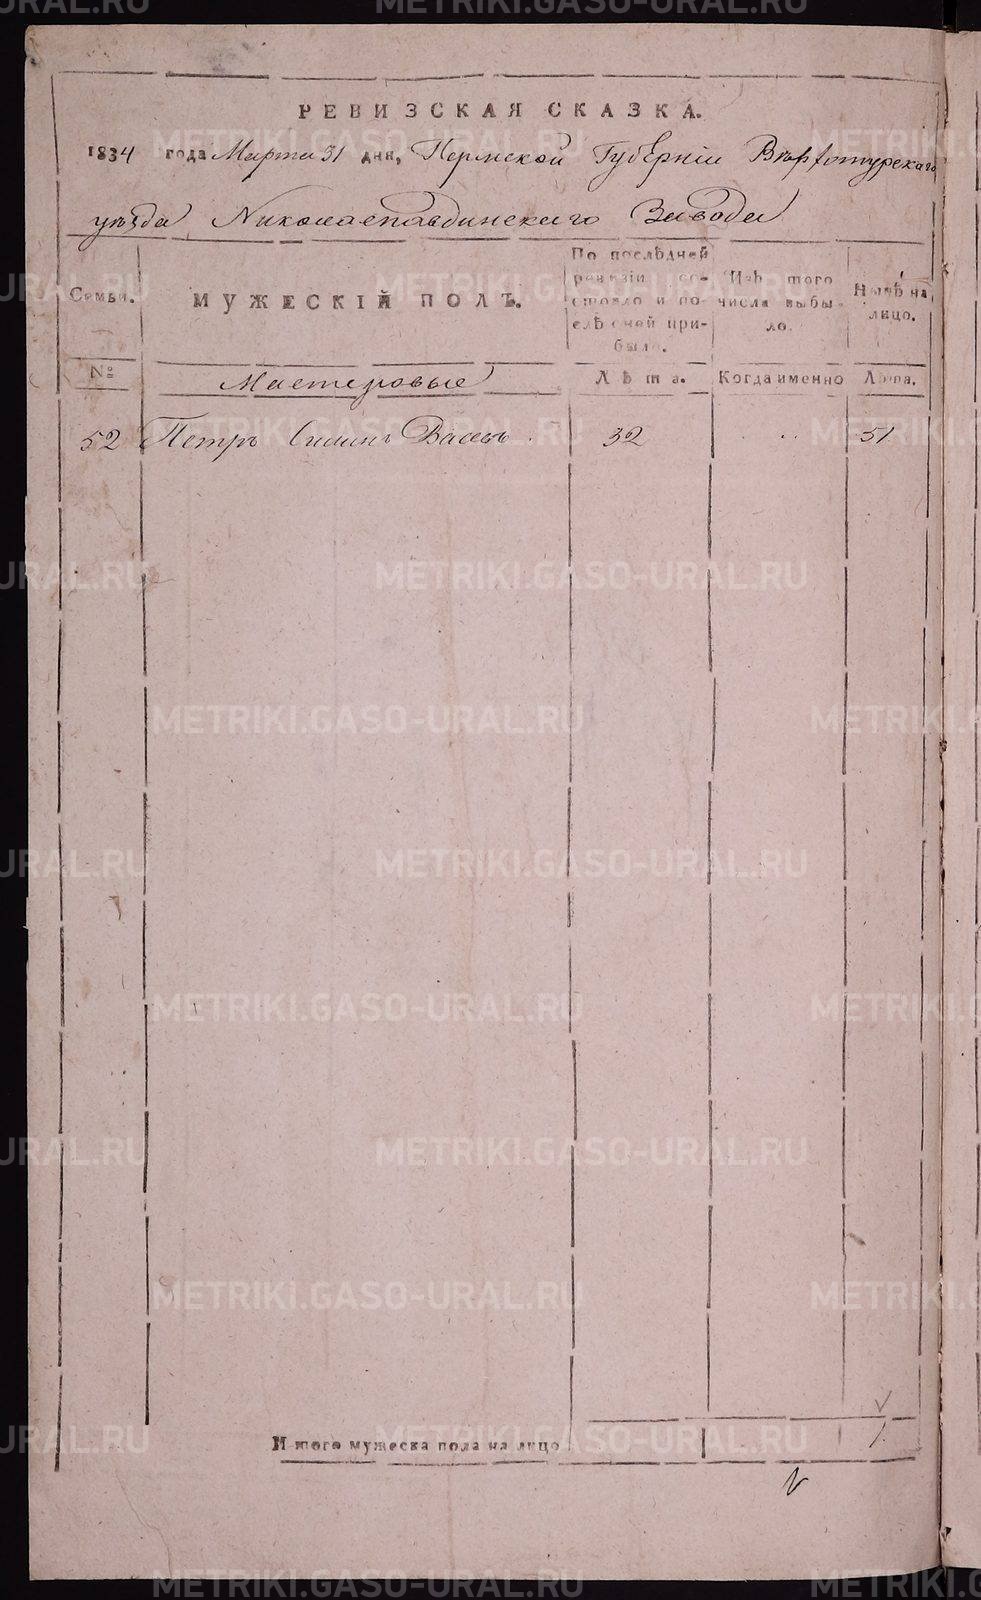 РЕВИЗСКАЯ СКАЗКА.
1834 года Марта 31 дня, Пермской Губернiи Верхотурскаго
уѣзда Николаепавдинскаго Завода
Семьи.
МУЖЕСКIЙ ПОЛЪ.
По послѣдней
ревизiи со-
стояло и по-
слѣ оной при-
было.
Изъ того
числа выбы-
ло.
Нынѣ на
лицо.
№
Мастеровые
Лѣта.
Когда именно
Лѣта.
52 Петръ 32 51
Итого мужеска пола на лицо 1
METRIKI.GASO-URAL.RU